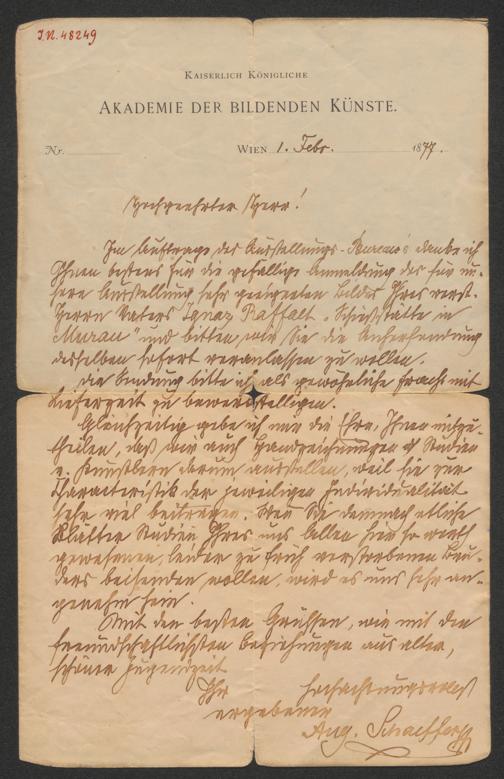 I.N. 48249
KAISERLICH KÖNIGLICHE
AKADEMIE DER BILDENDEN KÜNSTE.
Nr. WIEN 1. Febr. 1877.
Hochgeehrter Herr!
Im Auftrage des Ausstellungs-Bureau's danke ich
Ihnen bestens für die gefällige Anmeldung des für un-
sere Ausstellung sehr geeigneten Bildes Ihres verst.
Herrn Vaters Ignaz Raffalt „Schießstätte in
Murau" und bitten wir Sie die Anhersendung
desselben sofort veranlassen zu wollen.
Die Sendung bitte ich als gewöhnliche Fracht mit
Lieferzeit zu bewerkstelligen.
Gleichzeitig gebe ich mir die Ehre, Ihnen mitzu-
theilen, daß wir auch Handzeichnungen & Studien
v. Künstlern darum ausstellen, weil sie zur
Charakteristik der jeweiligen Individualität
sehr viel beitragen. Wenn Sie demnach etliche
Blätter Studien Ihres uns allen hier so werth
gewesenen, leider zu früh verstorbenen Bru-
ders beisenden wollen, wird es uns sehr an-
genehm sein.
Mit den besten Grüßen, wie mit den
freundschaftlichsten Beziehungen aus alter,
schöner Jugendzeit
Ihr hochachtungsvollst
ergebener
Aug. Schaeffer